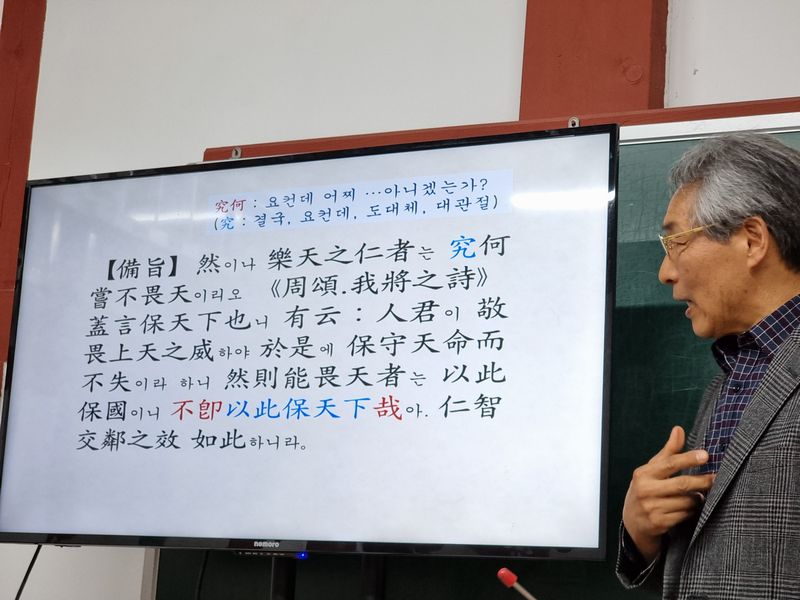 究何 : 요컨데 어찌 …아니겠는가?
(究 : 결국, 요컨데, 도대체, 대관절)
【備旨】 然이나 樂天之仁者는 究何
嘗不畏天이리오 《周頌.我將之詩》
蓋言保天下也니 有云 : 人君이 敬
畏上天之威하야 於是에 保守天命而
不失이라 하니 然則能畏天者는 以此
保國이니 不卽以此保天下哉아. 仁智
交鄰之效 如此하니라。
nemoro